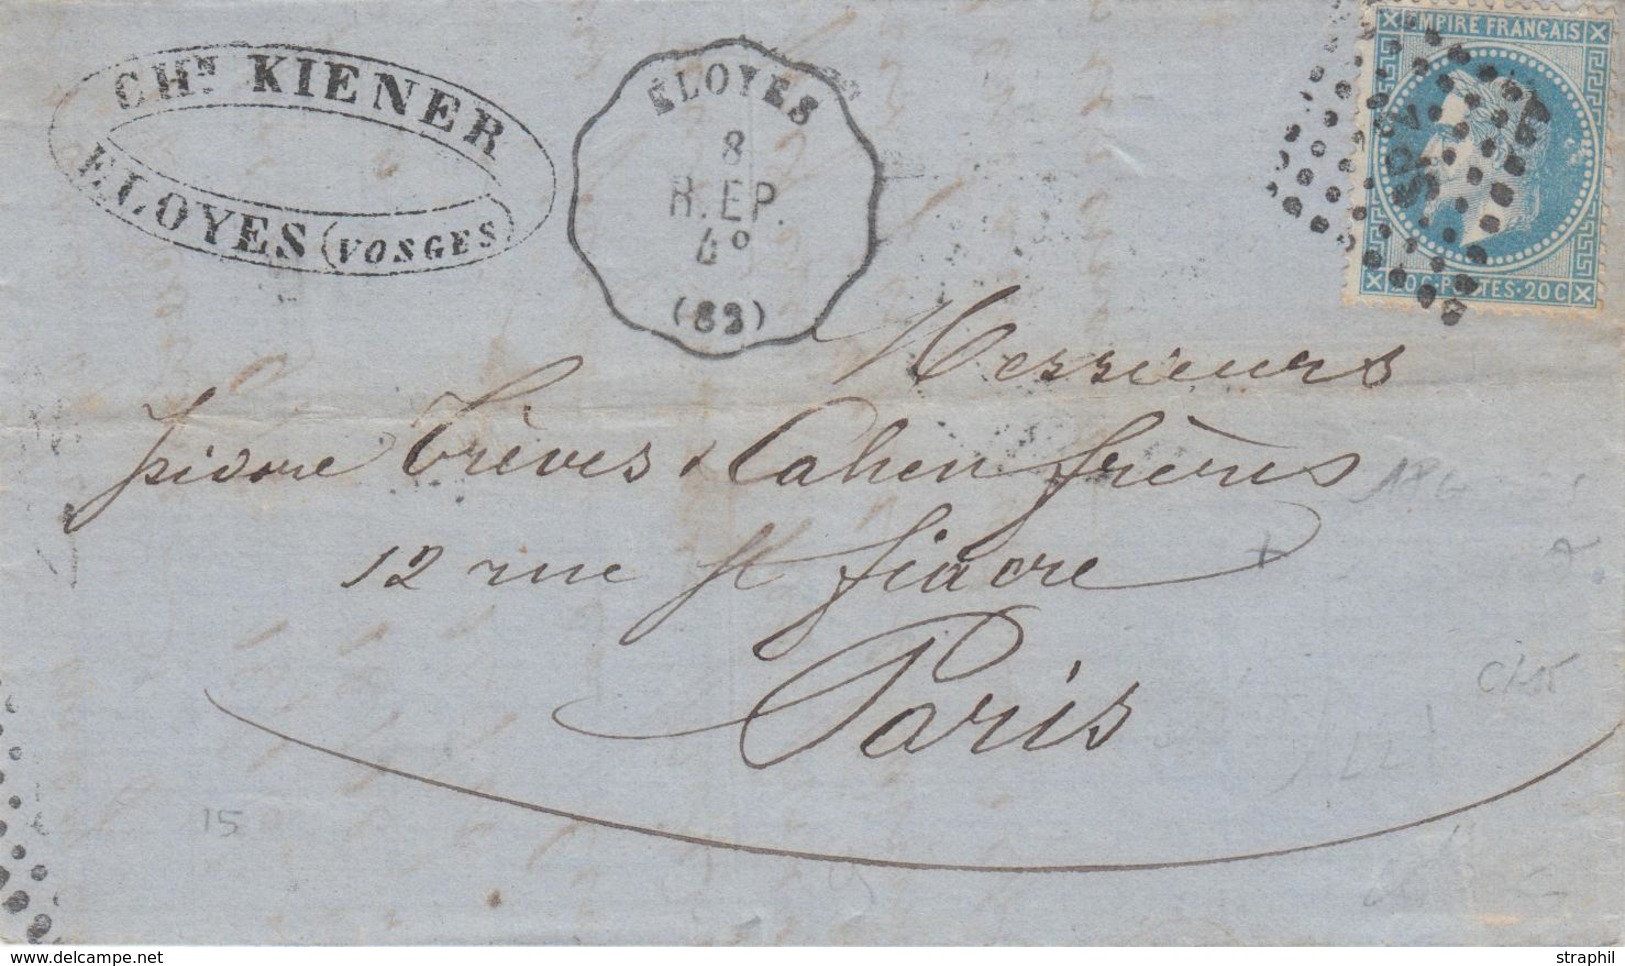 CHN KIENER
ELOYES (VOSGES)
ELOYES
8
R.EP.
4º
(82)
EMPIRE FRANÇAIS
20 C · POSTES · 20 C
Messieurs
Isidore Trèves & Cahen frères
12 rue St fiacre
Paris
15
delcampe.net
straphil